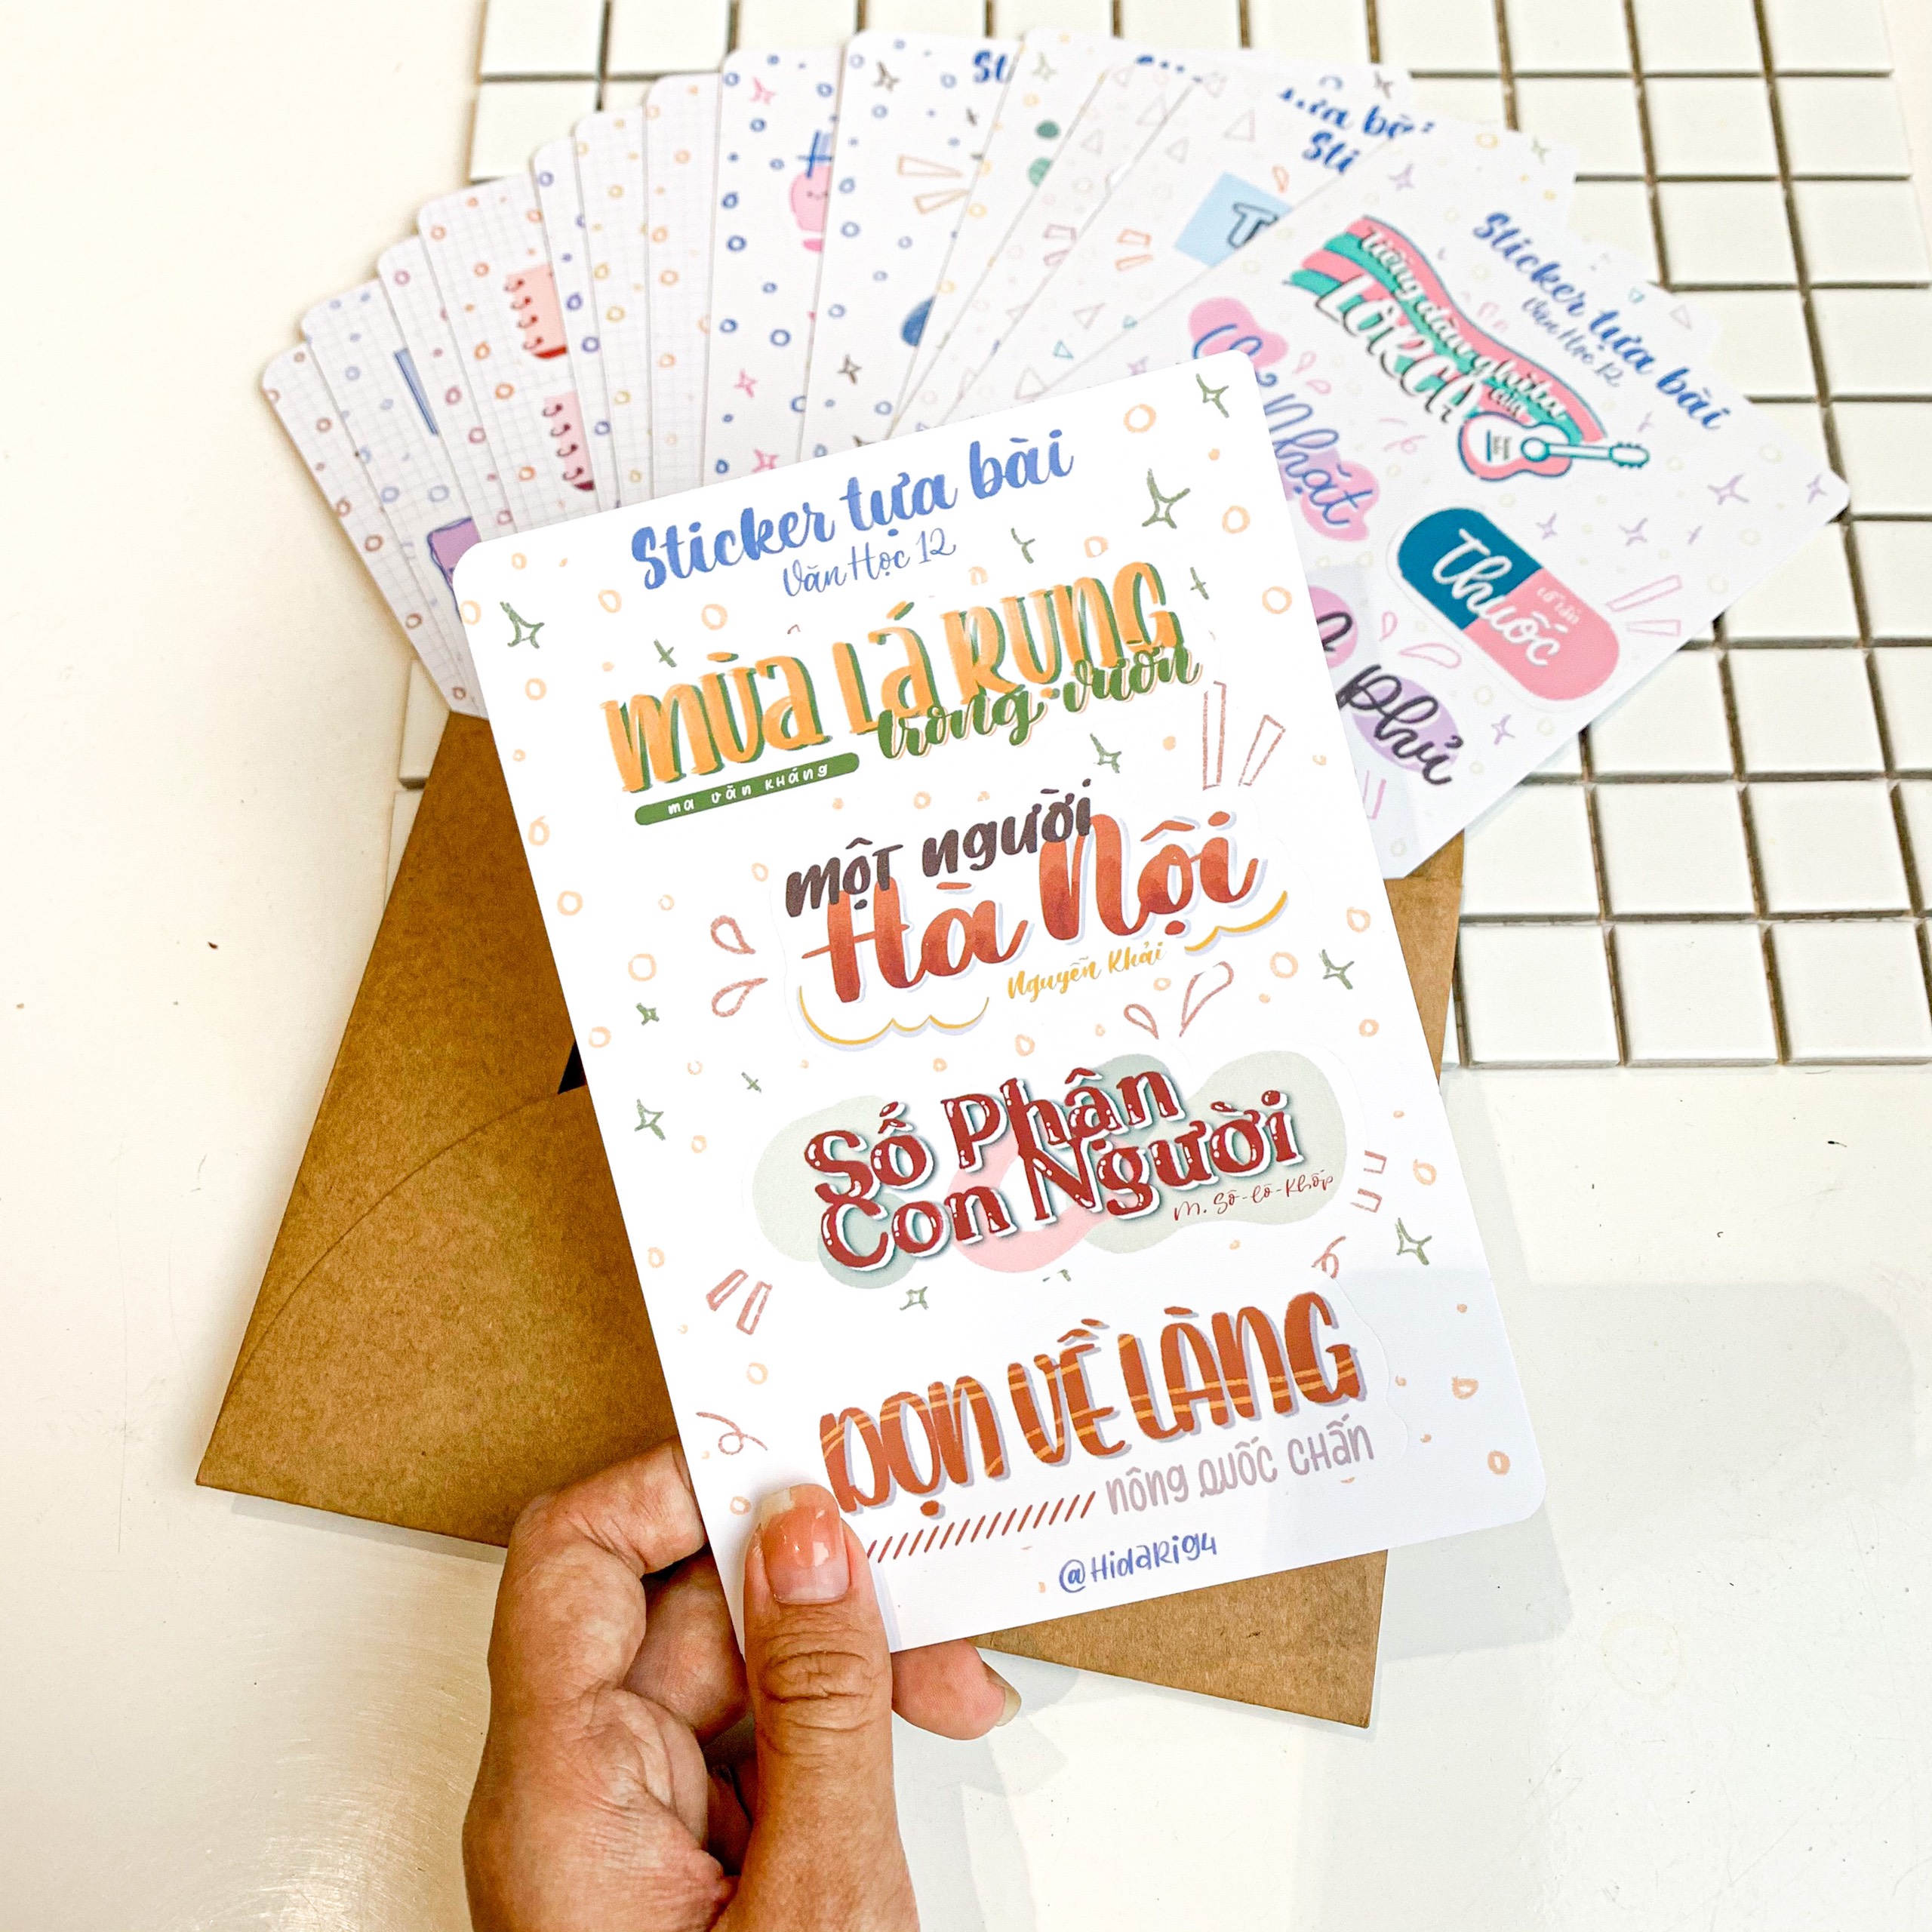 Sticker tựa bài
Văn Học 12
MÙA LÁ RỤNG
trong vườn
ma văn kháng
một người
Hà Nội
Nguyễn Khải
Số Phận
Con Người
M. Sô-lô-Khốp
DỌN VỀ LÀNG
nông Quốc Chấn
@HidaRi94
Sticker tựa bài
Văn Học 12
Tiếng đàn ghita
của
LORCA
Nhặt
Thuốc
Phủ
Sti